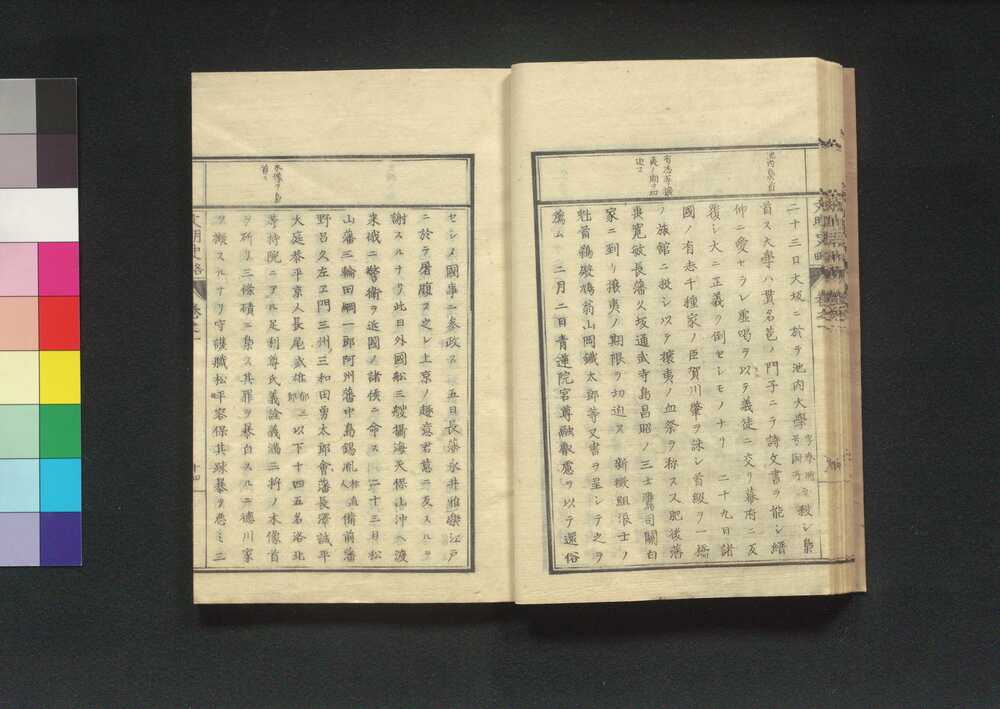 池内梟首
有志等攘
夷ノ期ヲ切
迫ス
二十三日大坂ニ於テ池内大學ヲ殺シ梟
首ス大學ハ賈名邕ノ門子ニテ詩文書ヲ能シ縉
紳ニ愛セラレ虛喝ヲ以テ義徒ニ交リ幕府ニ反
復シ大ニ正義ヲ倒セシモノナリ 二十九日諸
國ノ有志千種家ノ臣賀川肇ヲ誅シ首級ヲ一橋
ノ旅館ニ投シ以テ攘夷ノ血祭ヲ称ス 肥後藩
長藩久坂通武寺島昌昭ノ三士鷹司關白
家ニ到リ攘夷ノ期限ヲ切迫ス 新徴組浪士ノ
山岡鐵太郎等又書ヲ呈シテ之ヲ
二月二日青蓮院宮尊融叡慮ヲ以テ還俗
木像ヲ梟
首ス
セシメ國事ニ参政ス 五日長藩永井雅樂江戸
ニ於テ屠腹ス之レ上京ノ趣意君意ニ反スルヲ
謝スルナリ此日外國舩三艘攝海天保山沖ヘ渡
来城ニ警衛ヲ近國ノ諸侯ニ命ス 二十三日松
山藩三輪田綱一郎阿州藩中島錫胤備前藩
野呂久左ヱ門三州三和田勇太郎會藩長澤誠平
大庭恭平京人長尾武雄以下十四五名洛北
等持院ニアル足利尊氏義詮義満三将ノ木像首
ヲ斫リ三條磧ニ梟ス其罪ヲ暴白スルニ德川家
ヲ擬スルナリ守護職松平容保其踈暴ヲ悪ミ二
文明史略
卷之一
十四